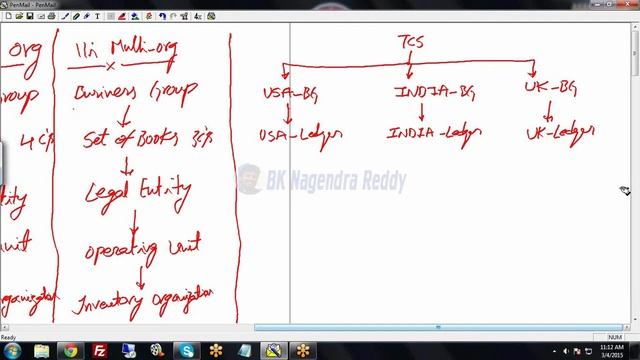 PenMail - PenMail
org
Group
4 C's
tity
unit
organization
11i Multi-org
Business Group
Set of Books 3C's
Legal Entity
Operating Unit
Inventory Organization
TCS
USA-BG INDIA-BG UK-BG
USA-Ledger INDIA-Ledger UK-Ledger
BK Nagendra Reddy
Ready
NUM
11:12 AM
3/4/2015